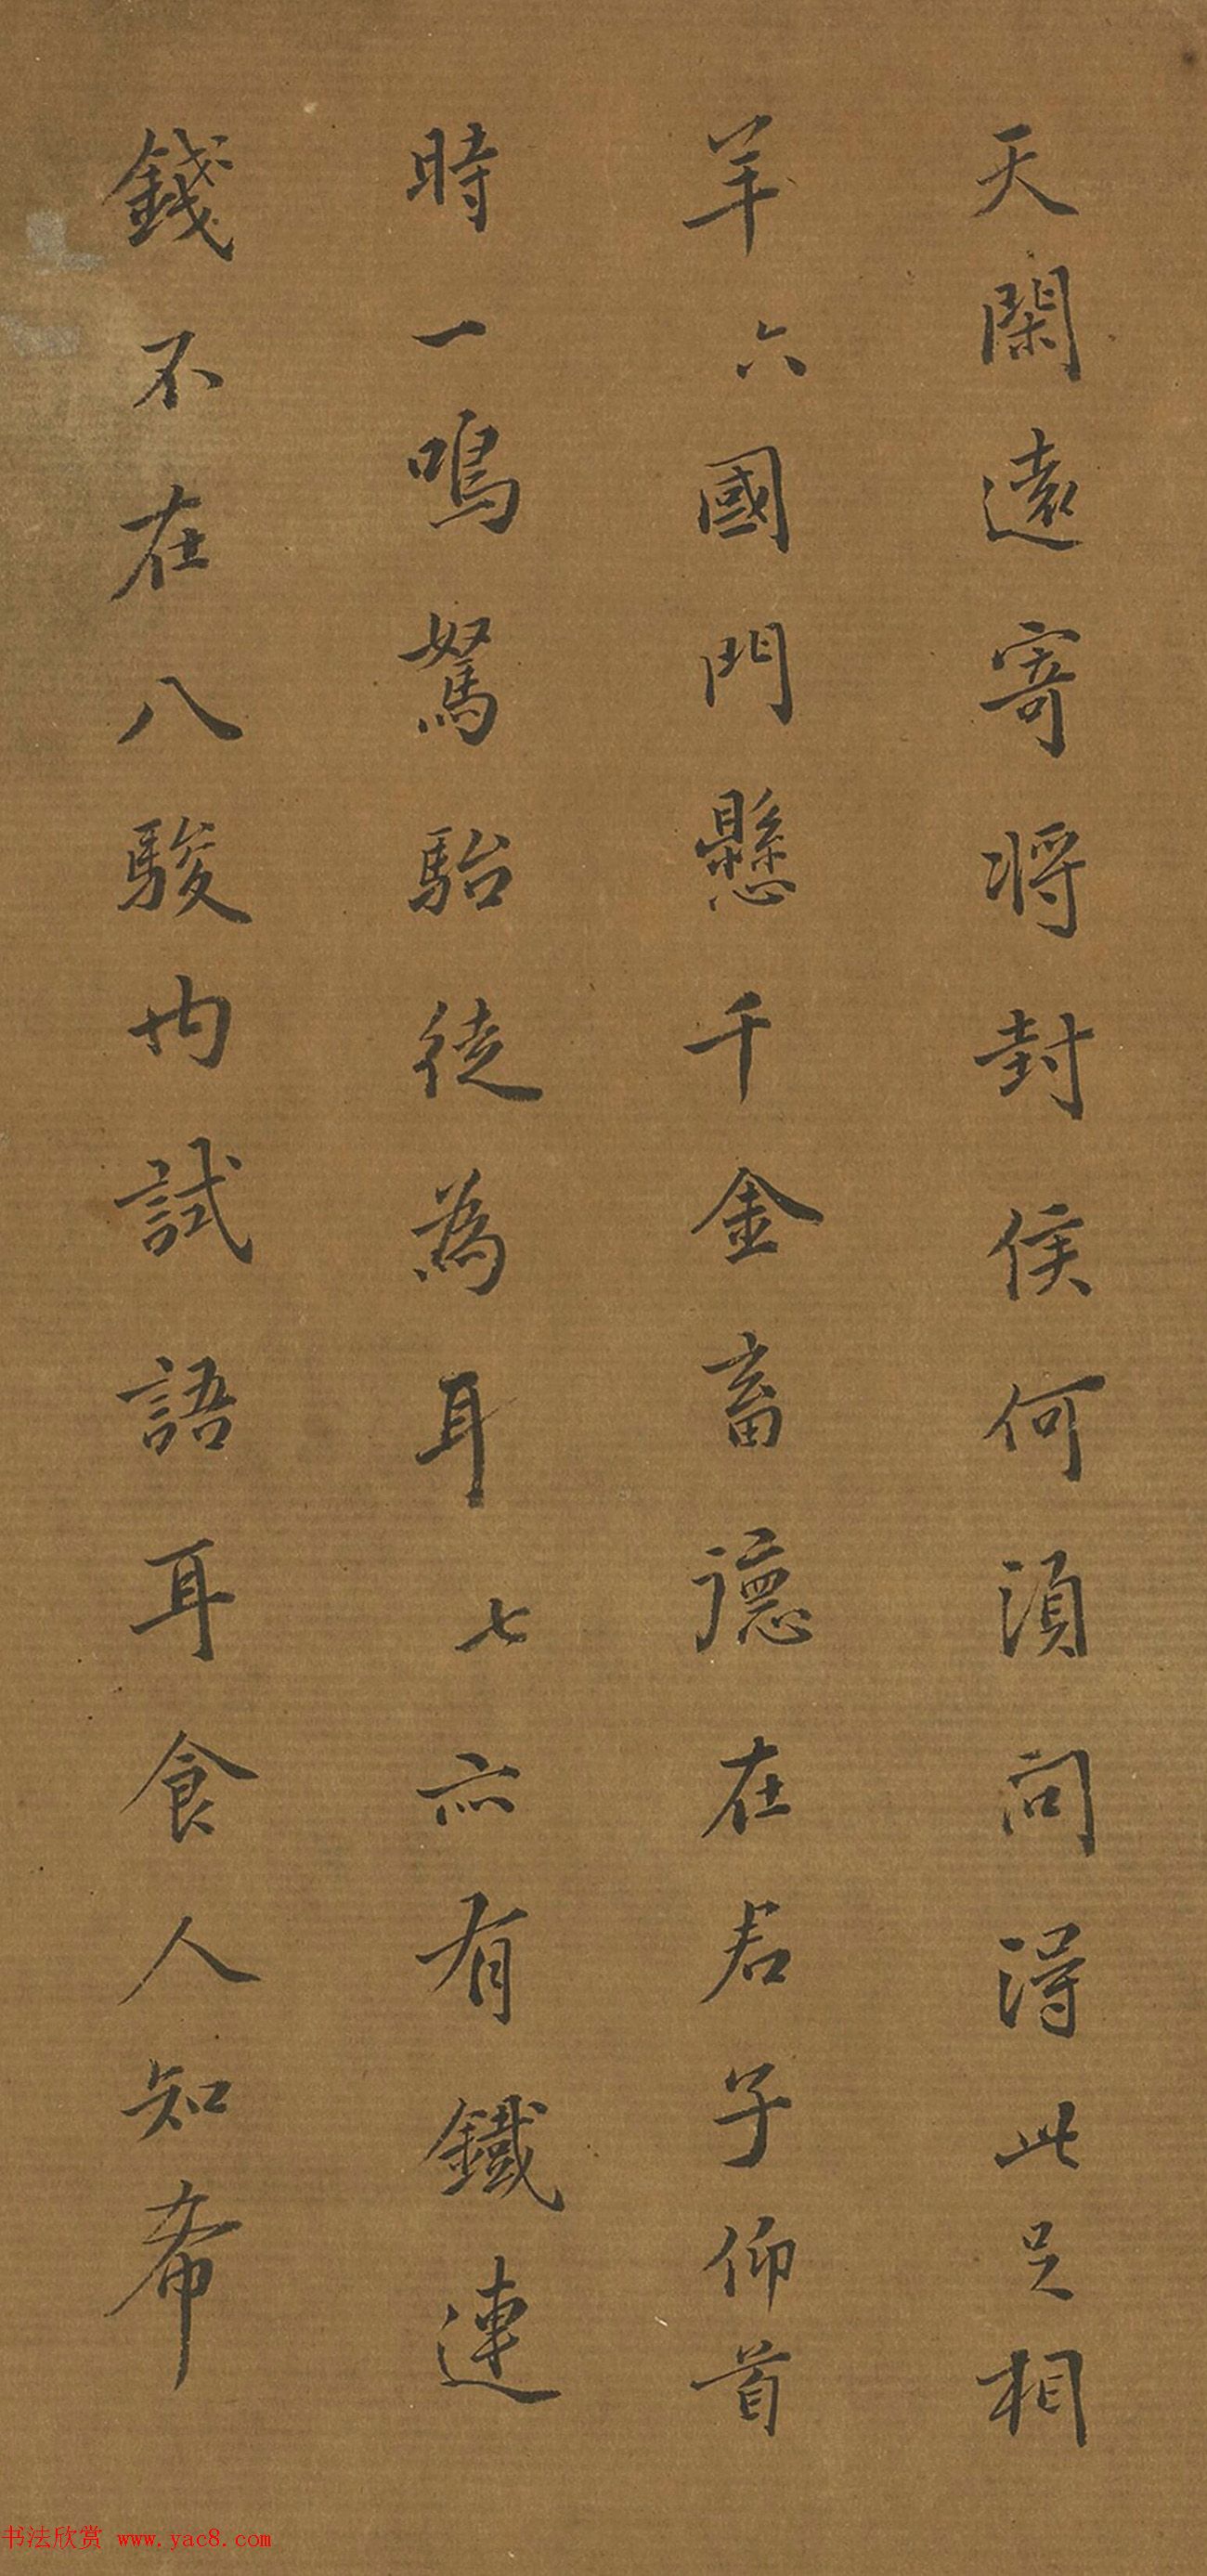 天閑遠寄將封侯何須問得此足相
羊六國門懸千金畜德在君子仰首
時一鳴駑駘徒為耳七亦有鐵連
錢不在八駿內試語耳食人知希
书法欣赏 www.yac8.com